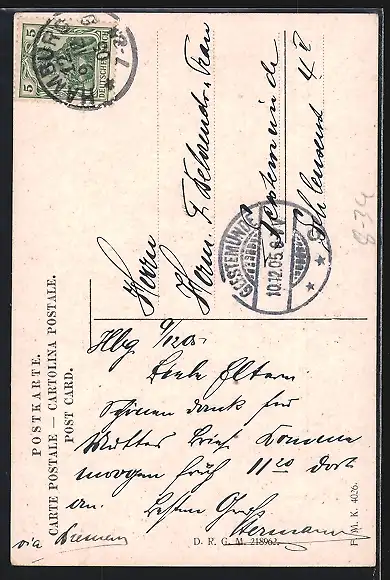 POSTKARTE.
CARTE POSTALE — CARTOLINA POSTALE.
POST CARD.
5 5
DEUTSCHES
HAMBURG
7-8
Herrn
Herm. F. u. Frau
Geestemünde
GEESTEMÜNDE
10.12.05. 8-
834
Hbg 9/12 05.
Liebe Eltern.
Schönen dank für
Mutters Brief. Komme
morgen früh 11 20 dort
an. Besten Gruß
Hermann
via Bremen
D. R. G. M. 218962.
F. M. K. 4026.